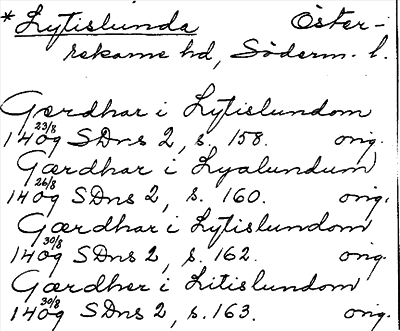 * Lytislunda Öster-
rekarne hd, Söderm. l.
Gærdhar i Lytislundom
1409 23/8 SDns 2, s. 158. orig.
Gærdhar i Lyalundum
1409 26/8 SDns 2, s. 160. orig.
Gærdhar i Lytislundom
1409 30/8 SDns 2, s. 162. orig.
Gærdher i Litislundom
1409 30/8 SDns 2, s. 163. orig.